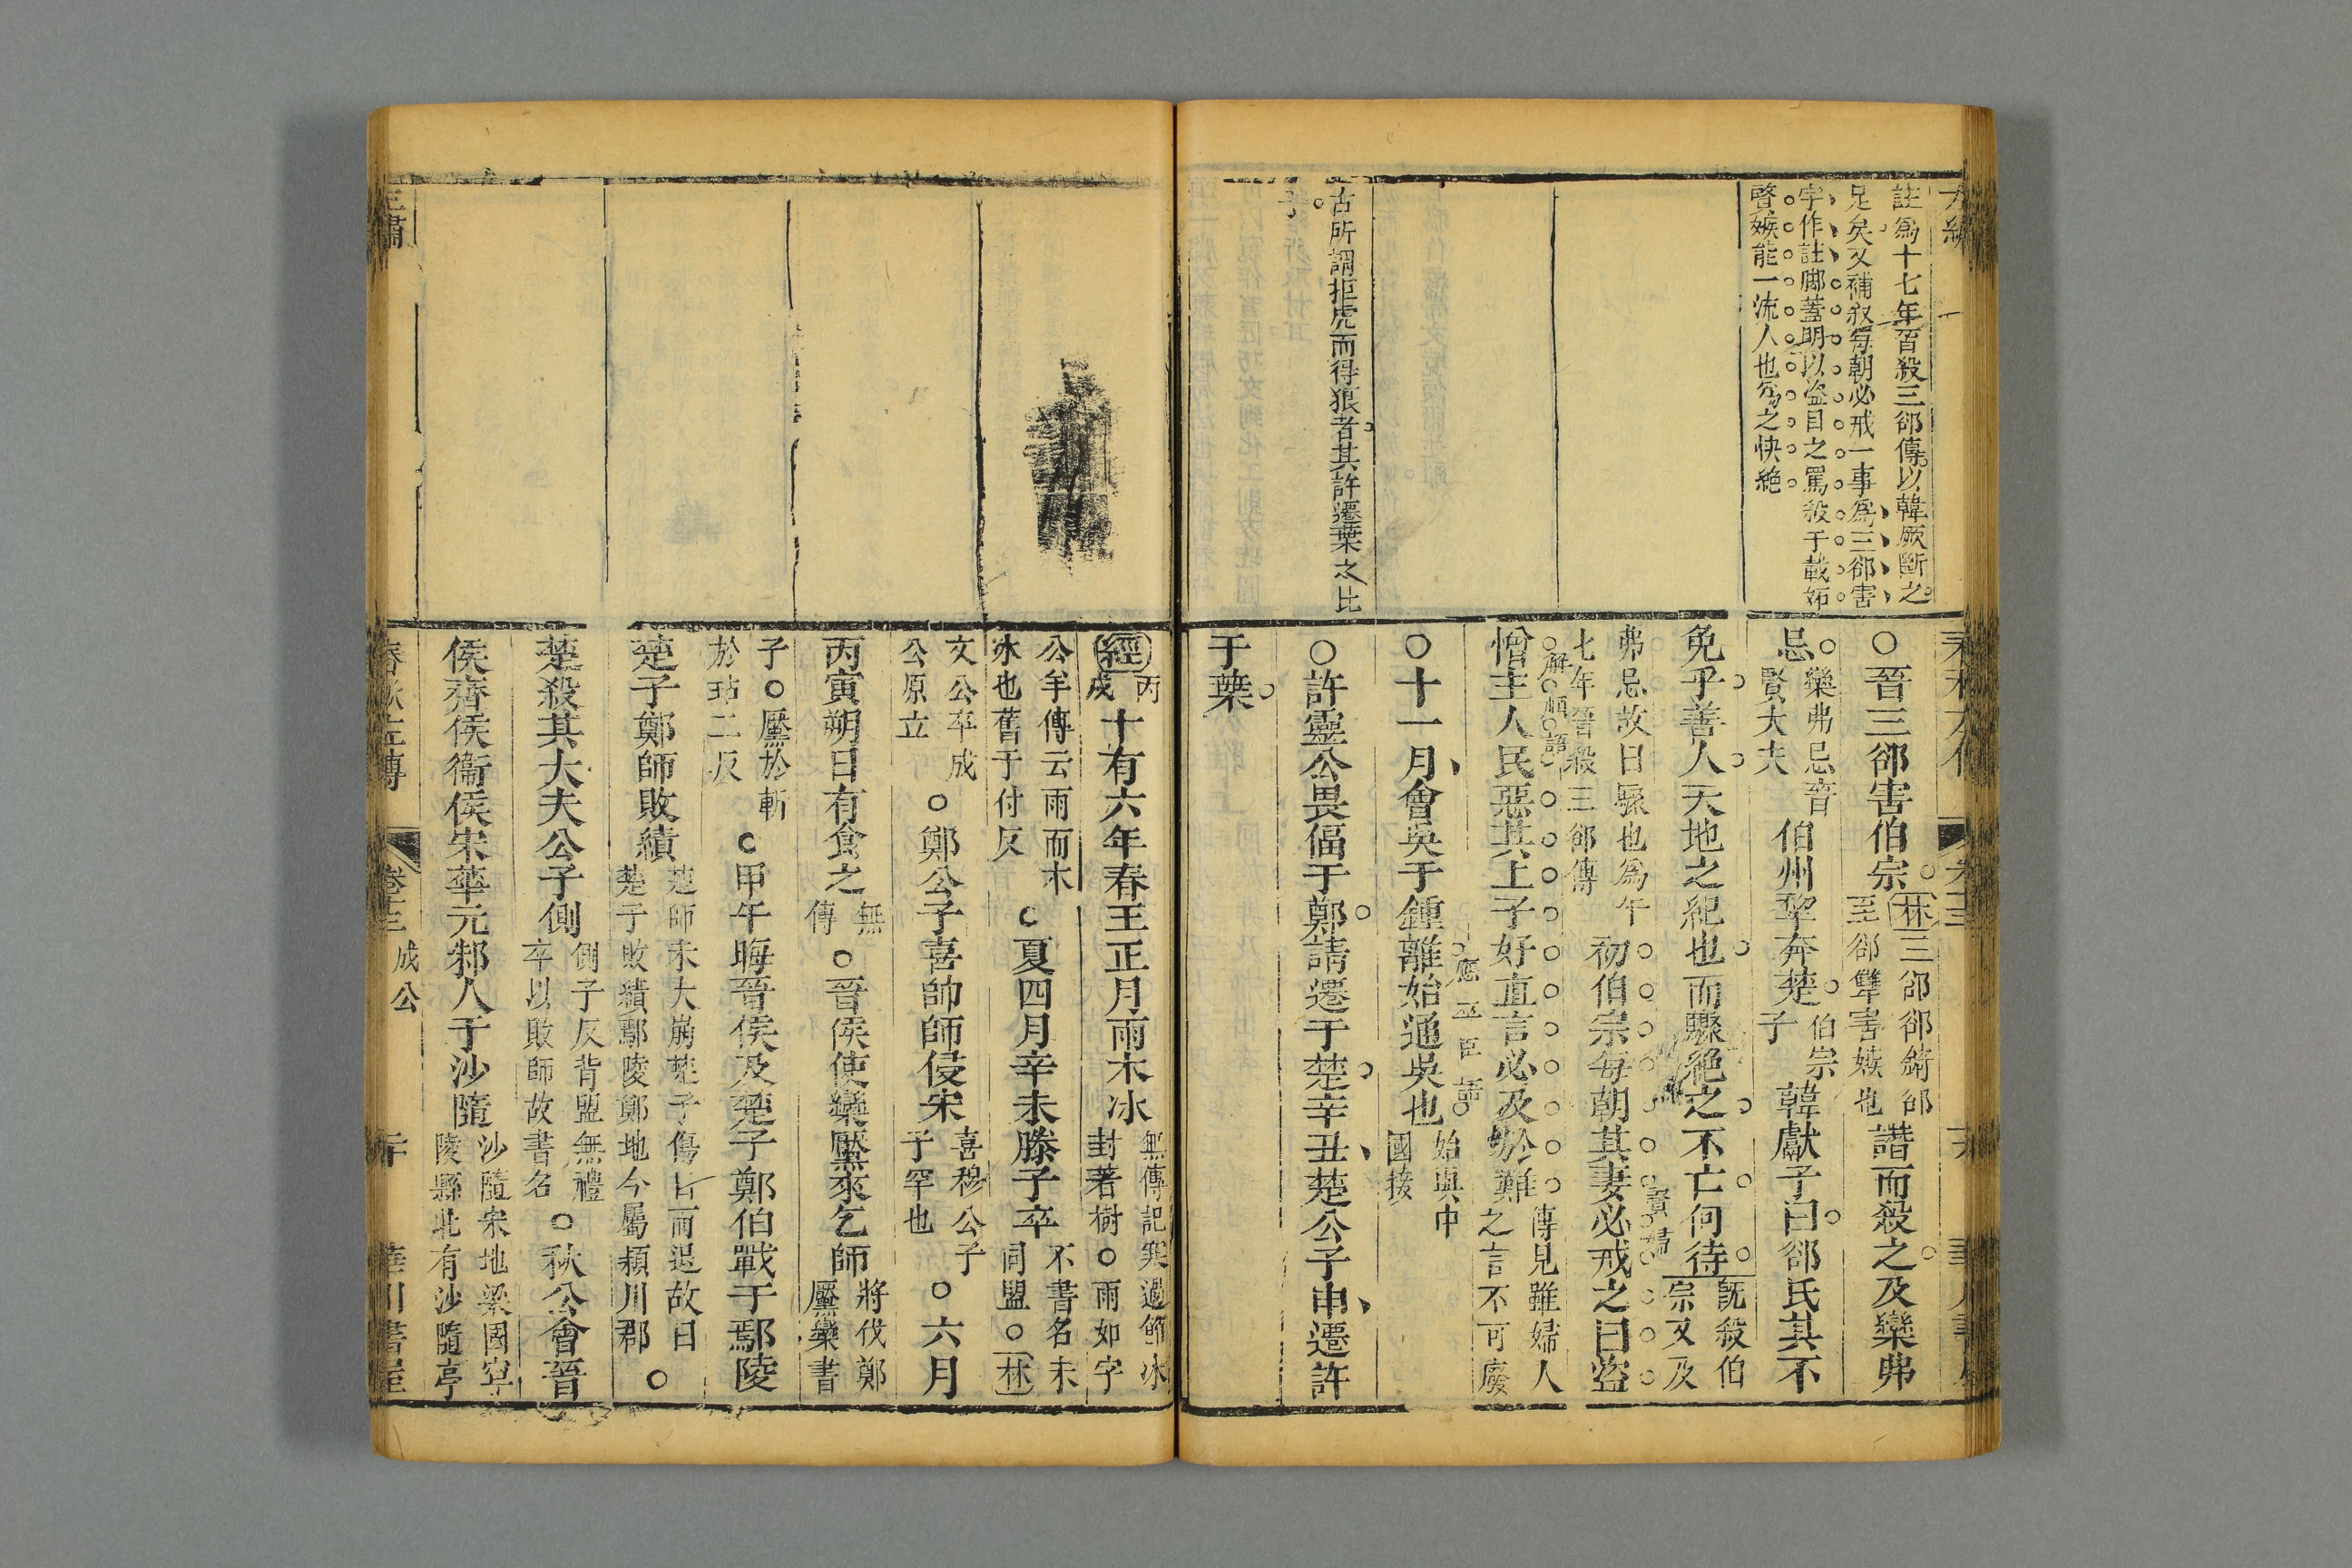 註爲十七年晉殺三郤傳以韓厥斷之
足矣又補叙每朝必戒一事爲三郤害
字作註脚蓋明以盗目之罵殺千載妬
賢嫉能一流人也爲之快絶
古所謂拒虎而得狼者其許遷葉之比
乎
○晉三郤害伯宗
林三郤郤錡郤
至郤犨害嫉也
譖而殺之及欒弗
忌
欒弗忌晉
賢大夫
伯州犂奔楚
伯宗
子
韓獻子曰郤氏其不
免乎善人天地之紀也而驟絶之不亡何待
既殺伯
宗又及
弗忌故曰驟也爲
七年晉殺三郤傳
初伯宗每朝其妻必戒之曰盗
賢婦
解順語
憎主人民惡其上子好直言必及於難
傳見雖婦人
之言不可廢
○十一月會吳于鍾離始通吳也
始與中
國接
○許靈公畏偪于鄭請遷于楚辛丑楚公子申遷許
于葉
經
丙
戌
十有六年春王正月雨木冰
無傳記寒過節冰
封著樹○雨如字
公羊傳云雨而木
冰也舊于付反
○夏四月辛未滕子卒
不書名未
同盟○林
文公卒成
公原立
○鄭公子喜帥師侵宋
喜穆公子
子罕也
○六月
丙寅朔日有食之
無
傳
○晉侯使欒黶來乞師
將伐鄭
黶欒書
子○黶於斬
於玷二反
○甲午晦晉侯及楚子鄭伯戰于鄢陵
楚子鄭師敗績
楚師未大崩楚子傷目而退故曰
楚子敗績鄢陵鄭地今屬潁川郡
○
楚殺其大夫公子側
側子反背盟無禮
卒以敗師故書名
○秋公會晉
侯齊侯衞侯宋華元邾人于沙隨
沙隨宋地梁國寧
陵縣北有沙隨亭
春秋左傳
成公